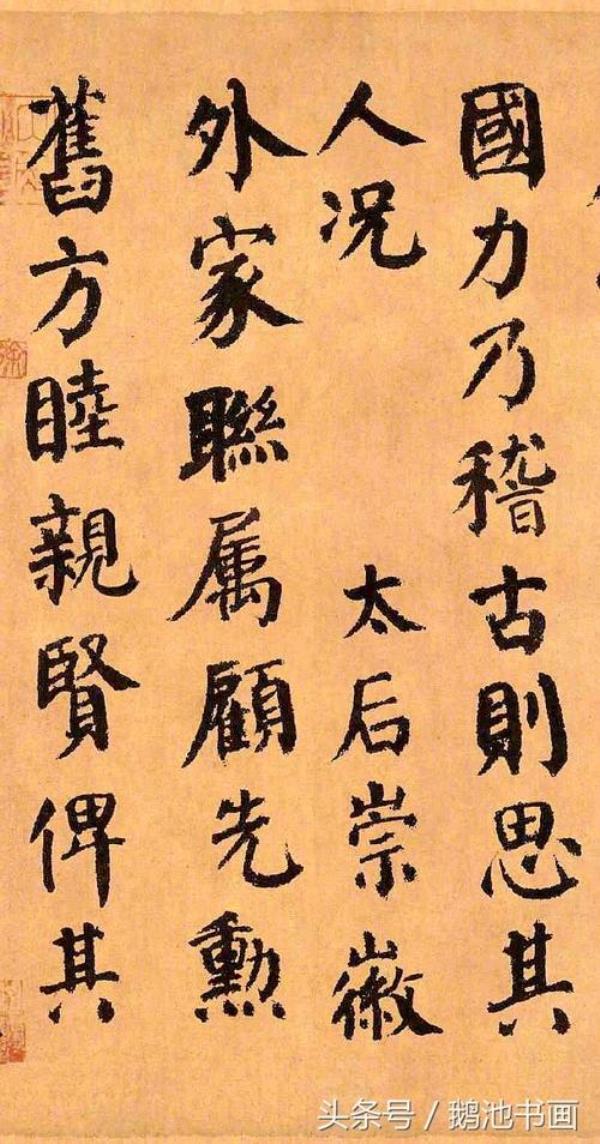 國力乃稽古則思其
人况　太后崇徽
外家聯属顧先勲
舊方睦親賢俾其
头条号 / 鹅池书画